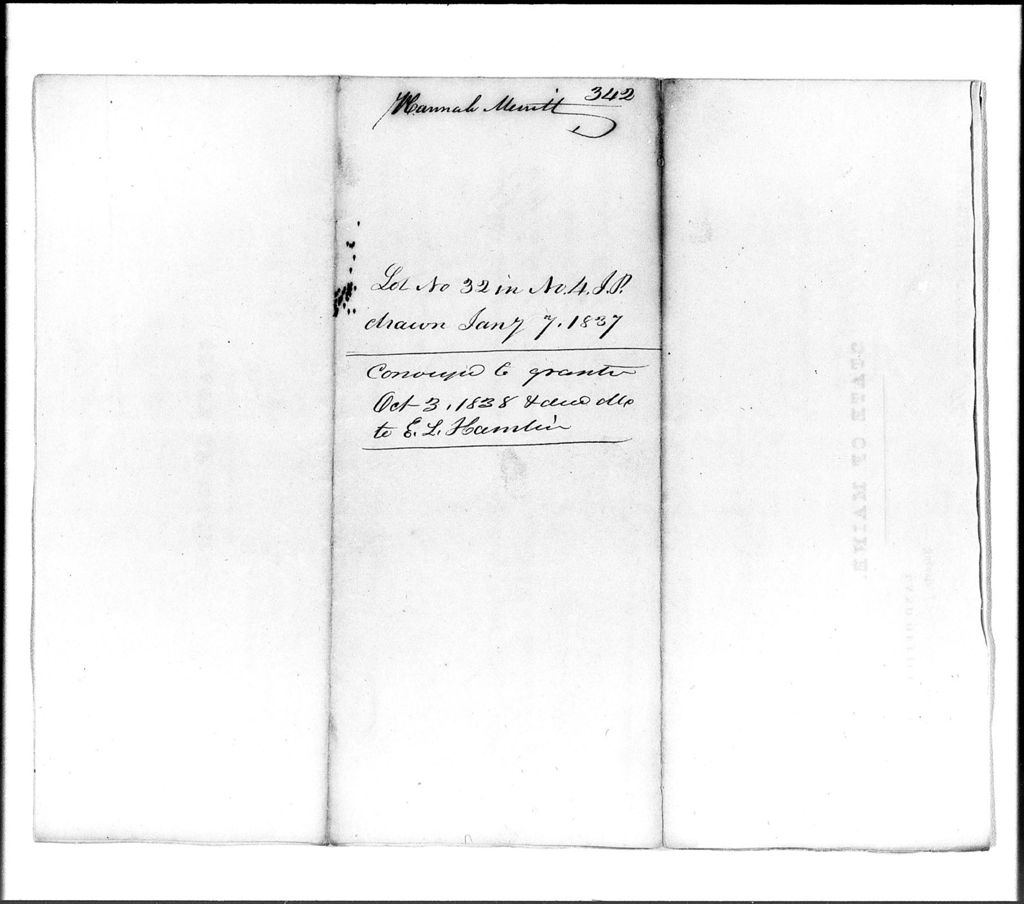 Hannah Merritt 342
Lot No 32 in No. 4. I.P.
drawn Jany 7. 1837
Conveyed to grantee
Oct 3. 1838 &
to E. L. Hamlin
STATE OF MAINE.